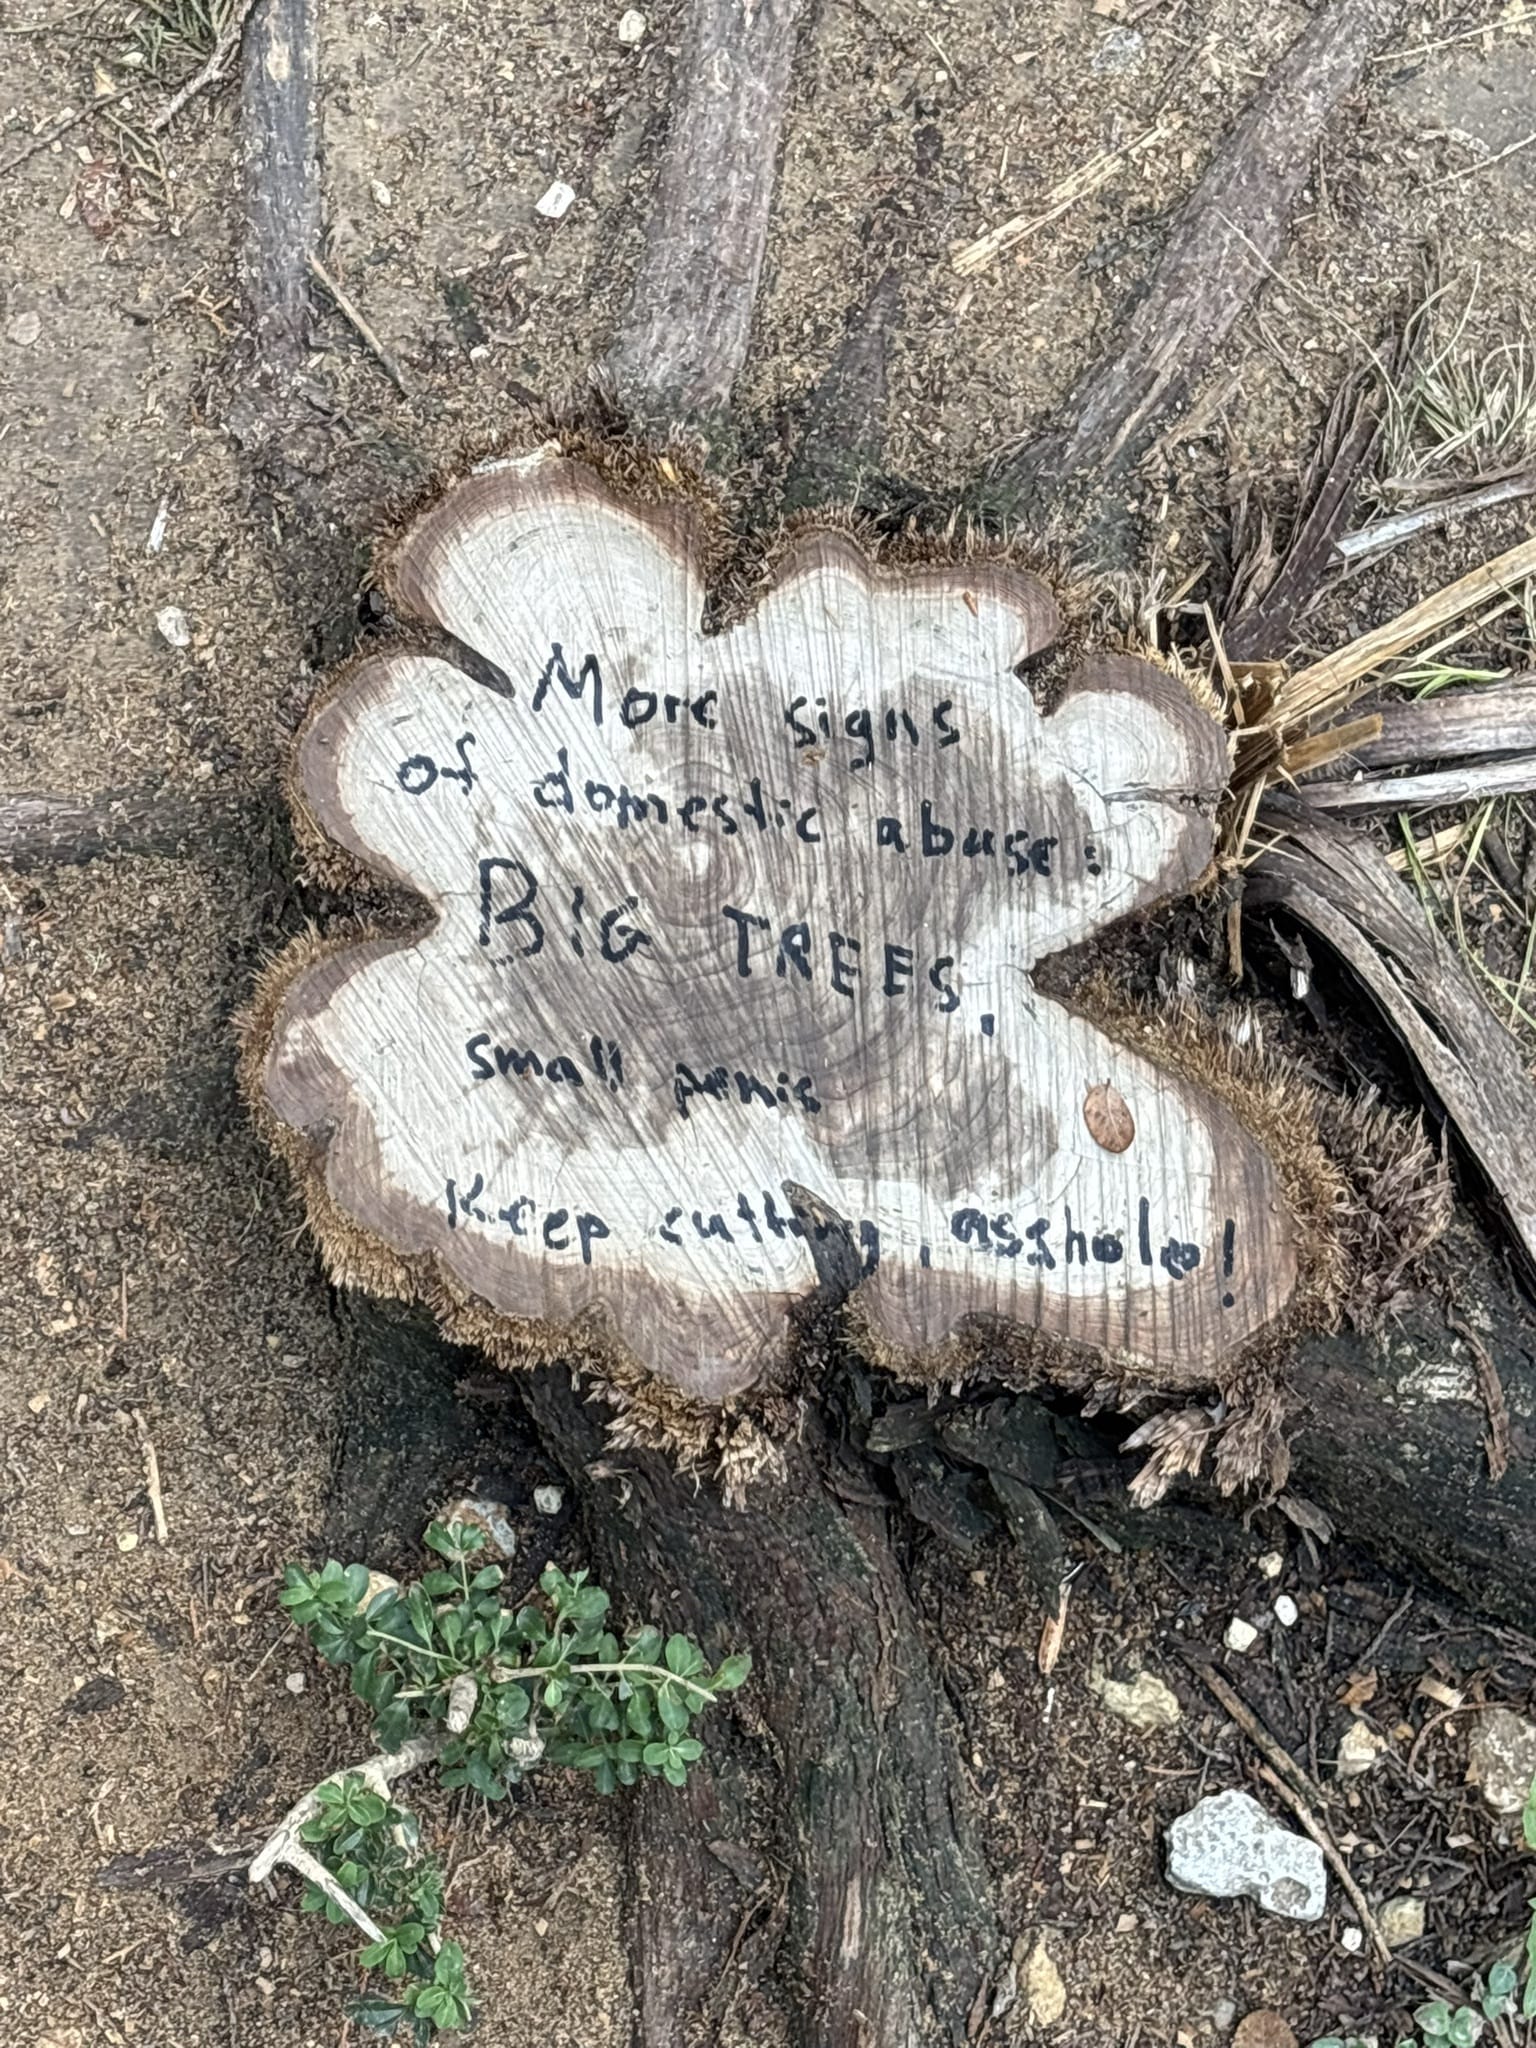 More signs
of domestic abuse:
BIG TREES,
small penis
Keep cutting, asshole!